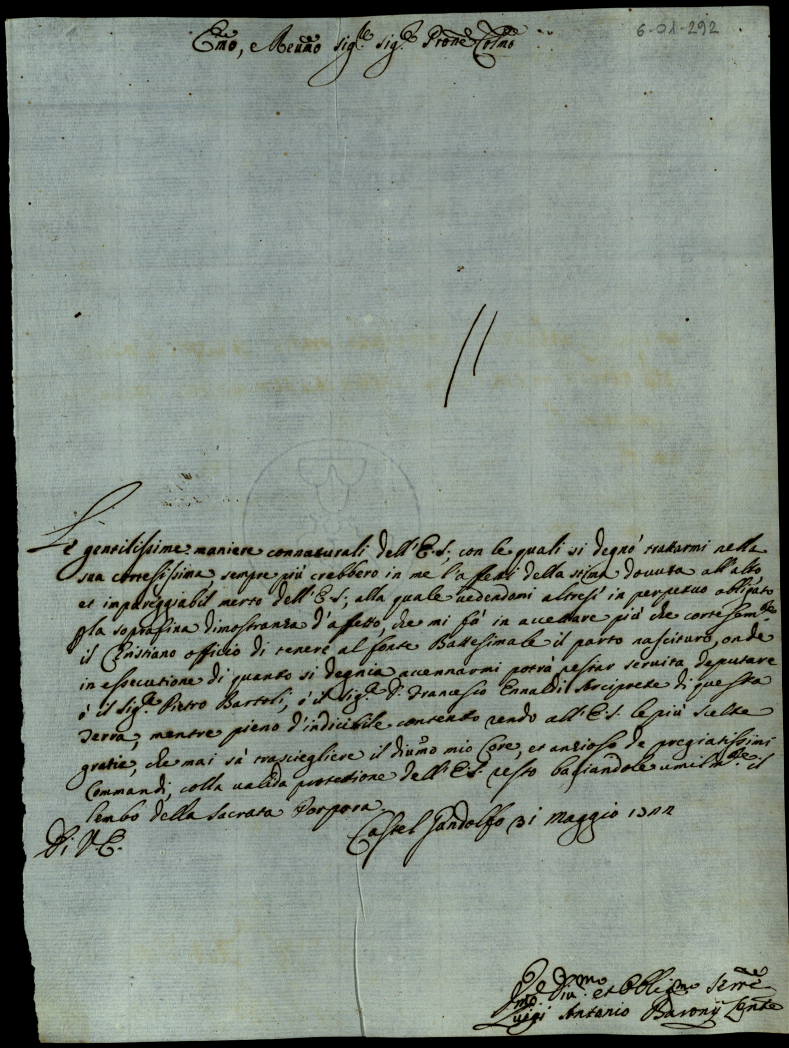 6-01-292
Emo, e Reumo sig.re sig.re Prone Colmo
Le gentilissime maniere connaturali dell'E.S. con le quali si degnò trattarmi nella
sua cortesissima, sempre più crebbero in me l'affetti della stima dovuta all'alto,
et impareggiabil merto dell'E.S; alla quale vedendomi altresì in perpetuo obligato
p la soprafina dimostranza d'affetto, che mi fà in accettare più che cortesem.te
il Cristiano officio di tenere al fonte Battesimale il parto nascituro, onde
in essecutione di quanto si degnia accennarmi potrà restar servita deputare
ò il sig.re Pietro Bartoli, ò il sig.re D. Francesco Ennaldi Arciprete di questa
Terra, mentre pieno d'indicibile contento rendo all'E.S. le più scelte
gratie, che mai sà trasciegliere il diumo mio Core, et anzioso de pregiatissimi
Commandi, colla valida protettione dell'E.S. resto baciandole umilm.te il
lembo della Sacrata Porpora
Di V.E.
Castel Gandolfo 31 Maggio
Diu.mo et Obligmo Serre
Luigi Antonio Baronij